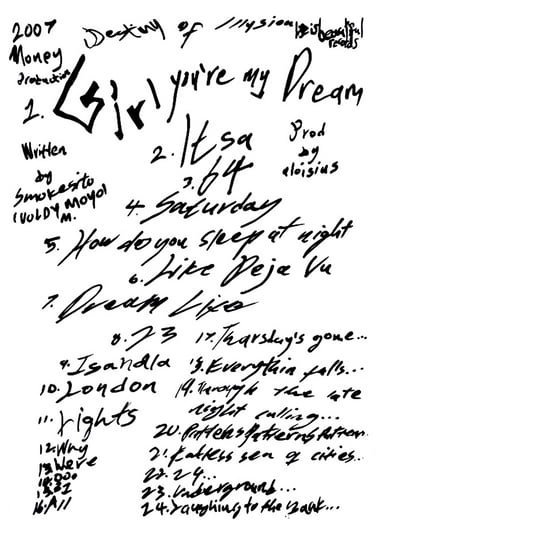 2007
Money
Production
Destiny of Illusion
beautiful
records
1. Girl you're my Dream
Written
by
Smokesito
(VULDY MOYO)
M.
2. Itsa
Prod
by
aloisius
3. 64
4. Saturday
5. How do you sleep at night
6. Like Deja Vu
7. Dream Like
8. 23
9. Isandla
10. London
11. Lights
12. Why
13. Were
16. All
17. Tharsday's gone...
18. Everythin falls...
19. Through the late
night calling...
20. Patterns
21. sea of cities..
22. 24...
23. Underground...
24. Laughing to the bank...